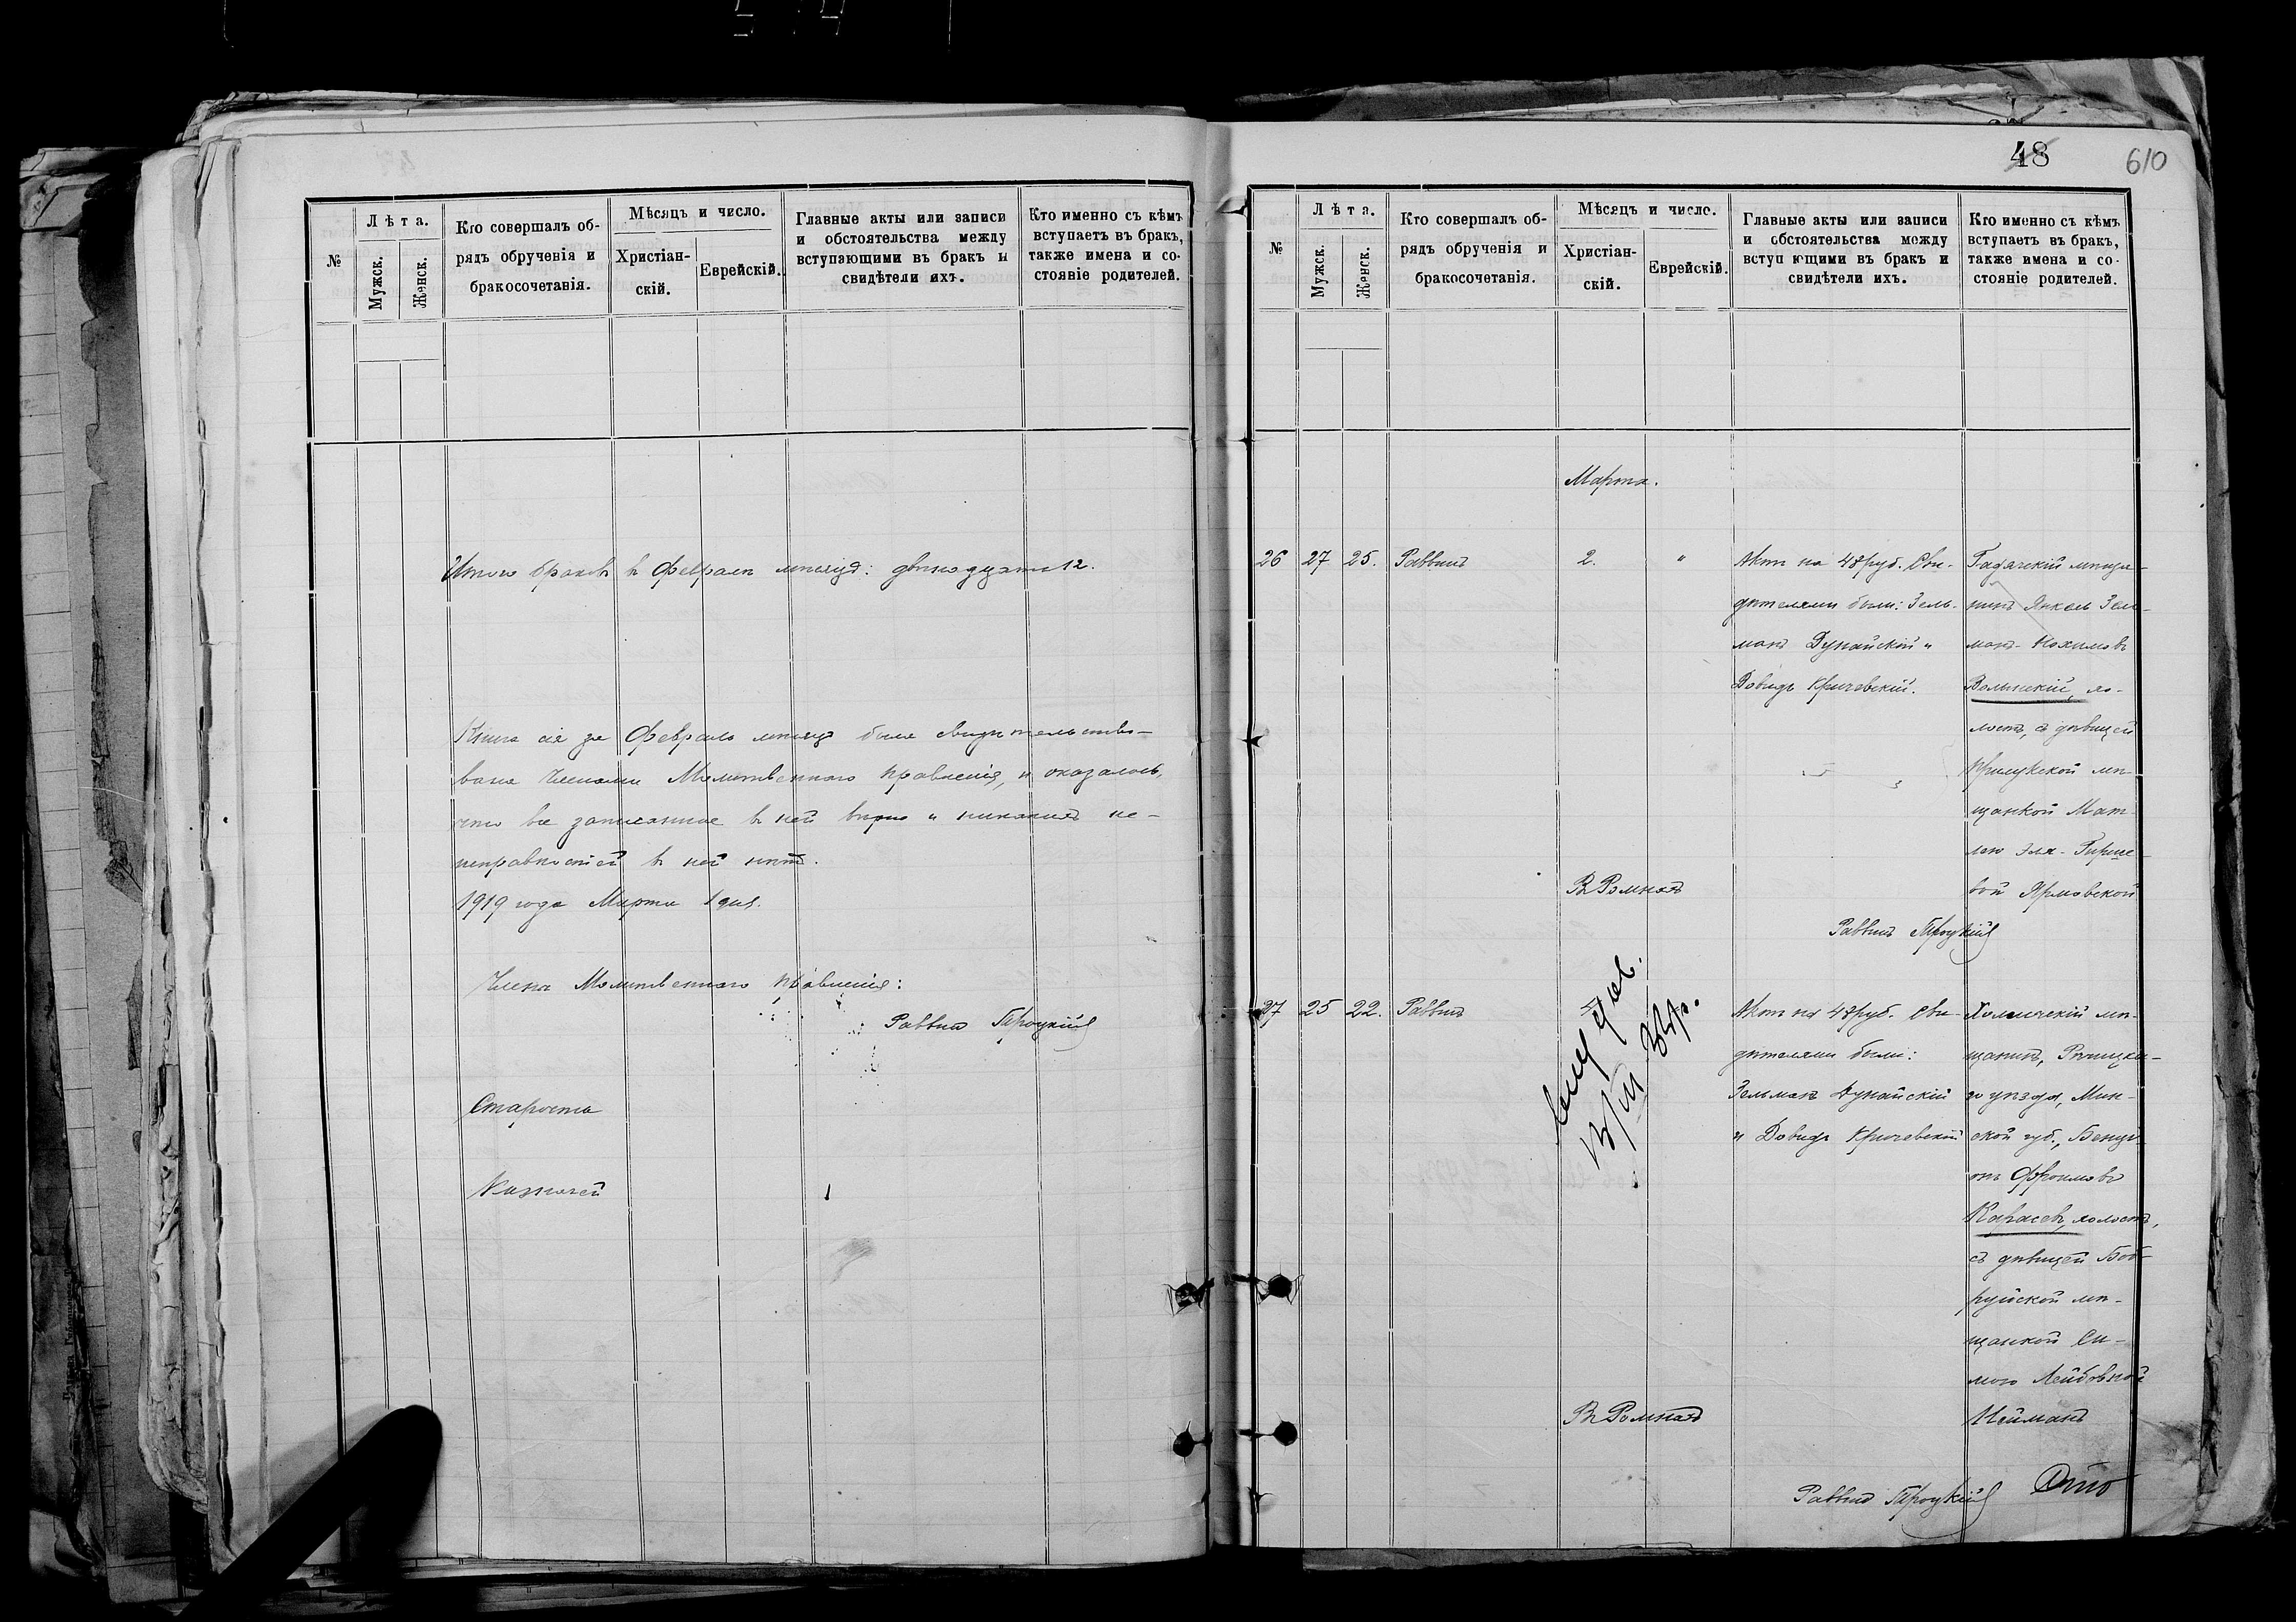 №
Лѣта.
Мужск.
Женск.
Кто совершалъ об-
рядъ обрученія и
бракосочетанія.
Мѣсяцъ и число.
Христіан-
скій.
Еврейскій.
Главные акты или записи
и обстоятельства между
вступающими въ бракъ и
свидѣтели ихъ.
Кто именно съ кѣмъ
вступаетъ въ бракъ,
также имена и со-
стояніе родителей.
Итого браковъ въ Февралѣ мѣсяцѣ: двѣнадцать 12.
Книга сія за Февраль мѣсяцъ была свидѣтельство-
вана Членами Молитвеннаго правленія, и оказалось,
что все записанное въ ней вѣрно и никакихъ не-
исправностей въ ней нѣтъ.
1919 года Марта 1 дня.
Члены Молитвеннаго правленія:
Раввинъ Троцкій
Староста
Казначей
48
610
№
Лѣта.
Мужск.
Женск.
Кто совершалъ об-
рядъ обрученія и
бракосочетанія.
Мѣсяцъ и число.
Христіан-
скій.
Еврейскій.
Главные акты или записи
и обстоятельства между
вступающими въ бракъ и
свидѣтели ихъ.
Кто именно съ кѣмъ
вступаетъ въ бракъ,
также имена и со-
стояніе родителей.
Марта.
26 27 25. Раввинъ 2. "
Актъ на 48 руб. Сви-
дѣтелями были: Зель-
манъ Дунайскій и
Довидъ Кричевскій.
Гадячскій мѣща-
нинъ Янкель Зел-
манъ-Нохимовъ
Волынскій, хо-
лостъ, съ дѣвицей
Прилукской мѣ-
щанкой Мат-
лею Эля-Гирше-
вой Ярмовской
Въ Ромнахъ
Раввинъ Троцкій
27 25 22. Раввинъ
Актъ на 48 руб. Сви-
дѣтелями были:
Зельманъ Дунайскій
и Довидъ Кричевскій
Холмечскій мѣ-
щанинъ, Рѣчицка-
го уѣзда, Мин-
ской губ., Бенці-
онъ Фроимовъ
Карасевъ, холостъ,
съ дѣвицей Боб-
руйской мѣ-
щанкой Си-
мою Лейбовной
Нейманъ
Въ Ромнахъ
Раввинъ Троцкій